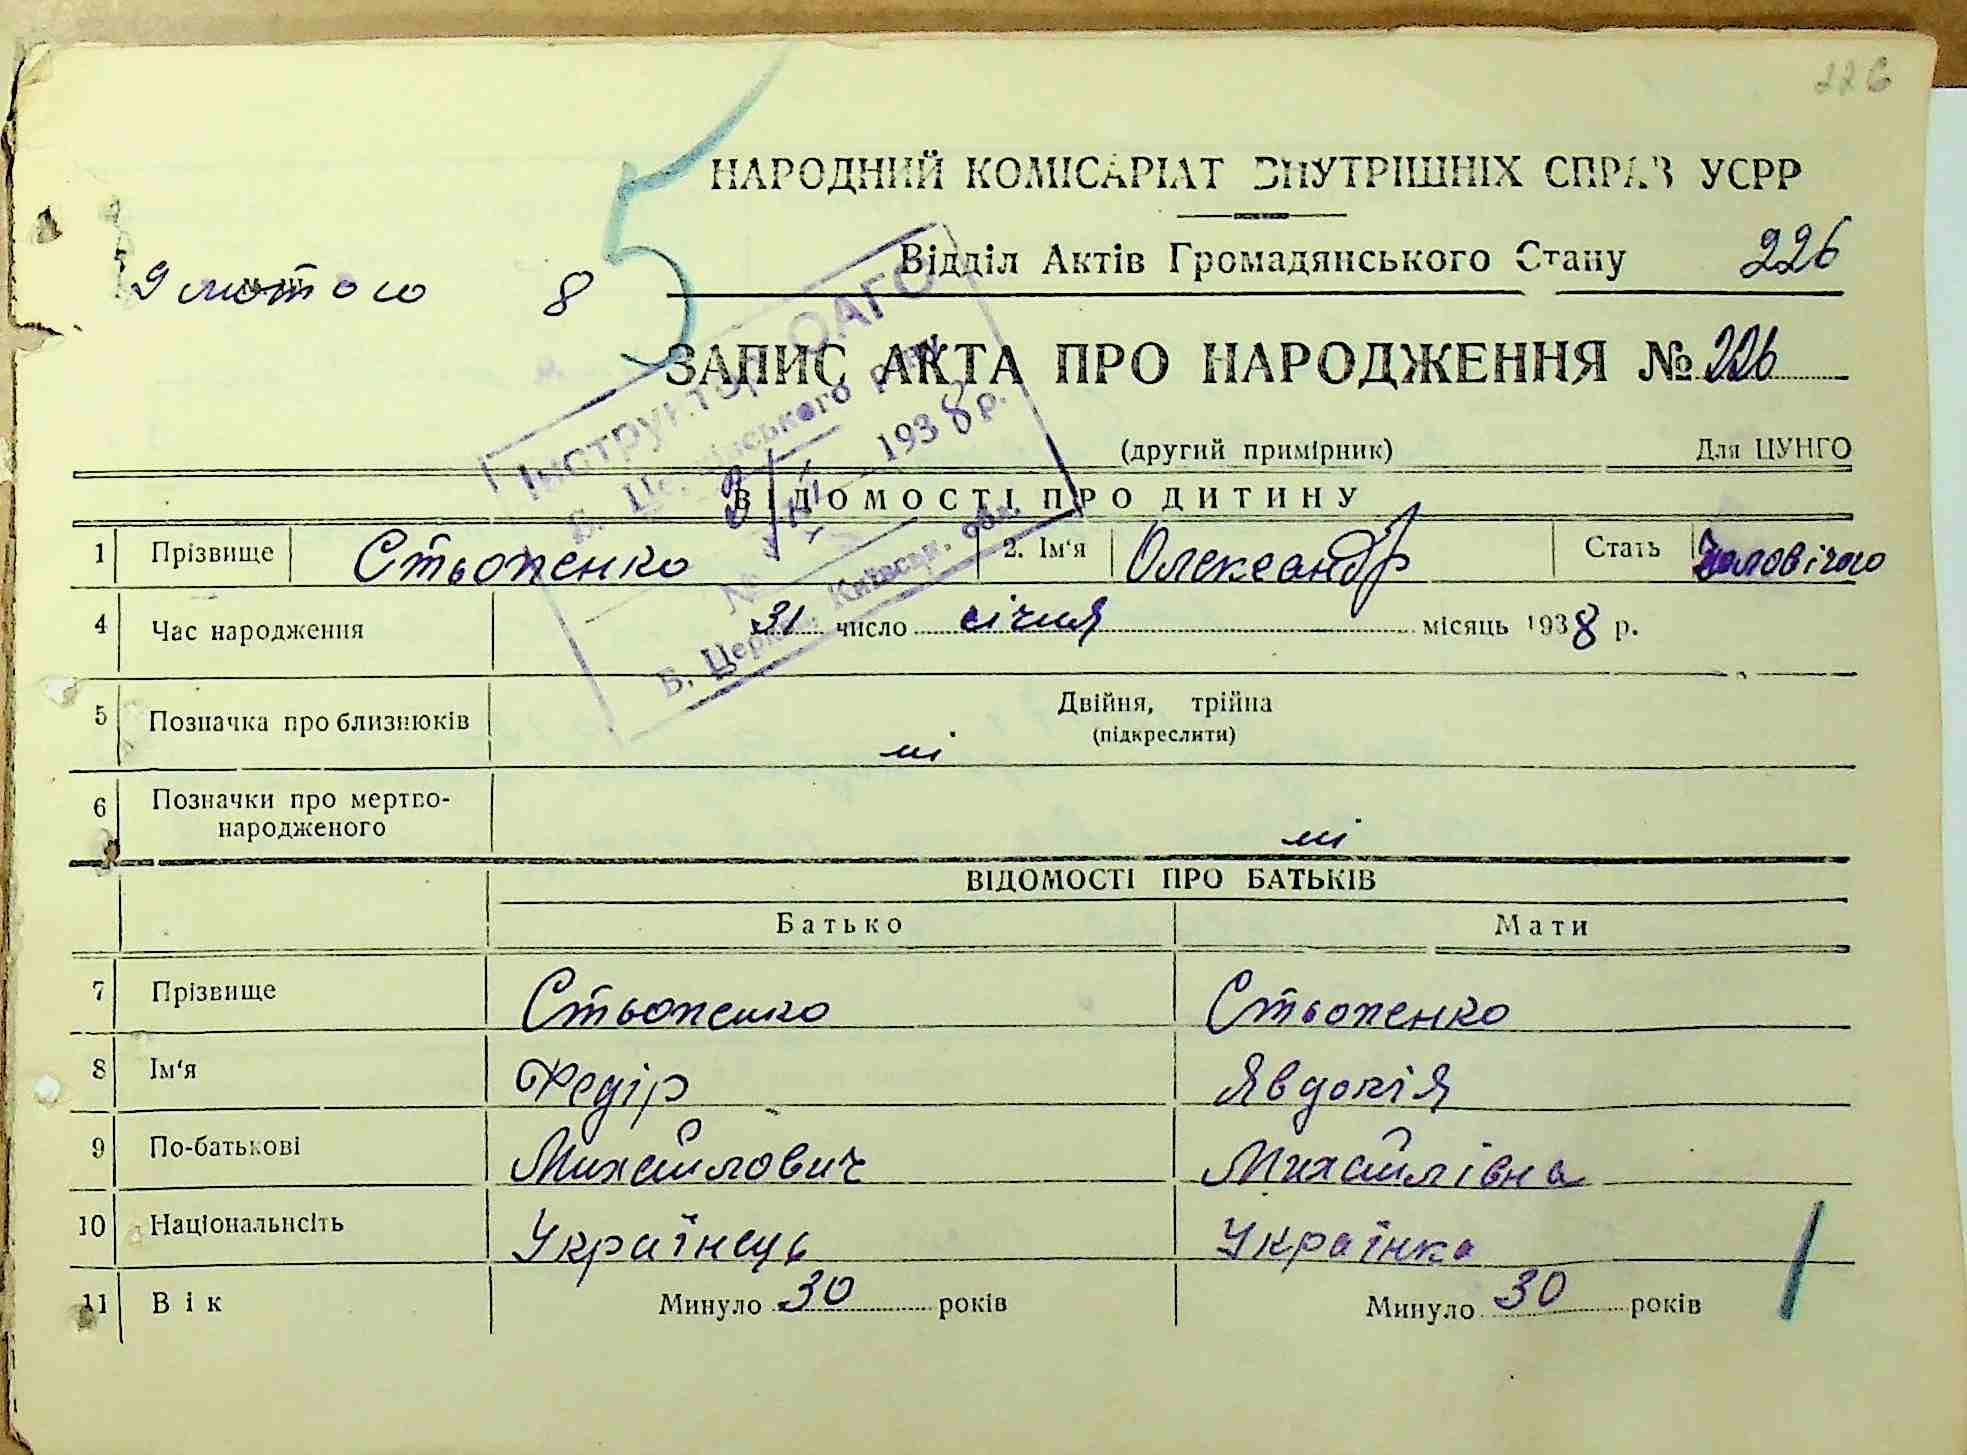 226
НАРОДНИЙ КОМІСАРІАТ ВНУТРІШНІХ СПРАВ УСРР
Відділ Актів Громадянського Стану 226
9 лютого 8
5
ЗАПИС АКТА ПРО НАРОДЖЕННЯ № 226
(другий примірник) Для ЦУНГО
Інструктор ОАГС
Б. Церківського
1938 р.
№
Б. Церква, Київськ. обл.
ВІДОМОСТІ ПРО ДИТИНУ
1 Прізвище Стьопенко 2. Ім'я Олександр Стать Чоловічого
4 Час народження 31 число січня місяць 1938 р.
5 Позначка про близнюків Двійня, трійна
(підкреслити)
ні
6 Позначки про мертво-
народженого ні
ВІДОМОСТІ ПРО БАТЬКІВ
Батько Мати
7 Прізвище Стьопенко Стьопенко
8 Ім'я Федір Явдокія
9 По-батькові Михайлович Михайлівна
10 Національнсіть Українець Українка
11 Вік Минуло 30 років Минуло 30 років